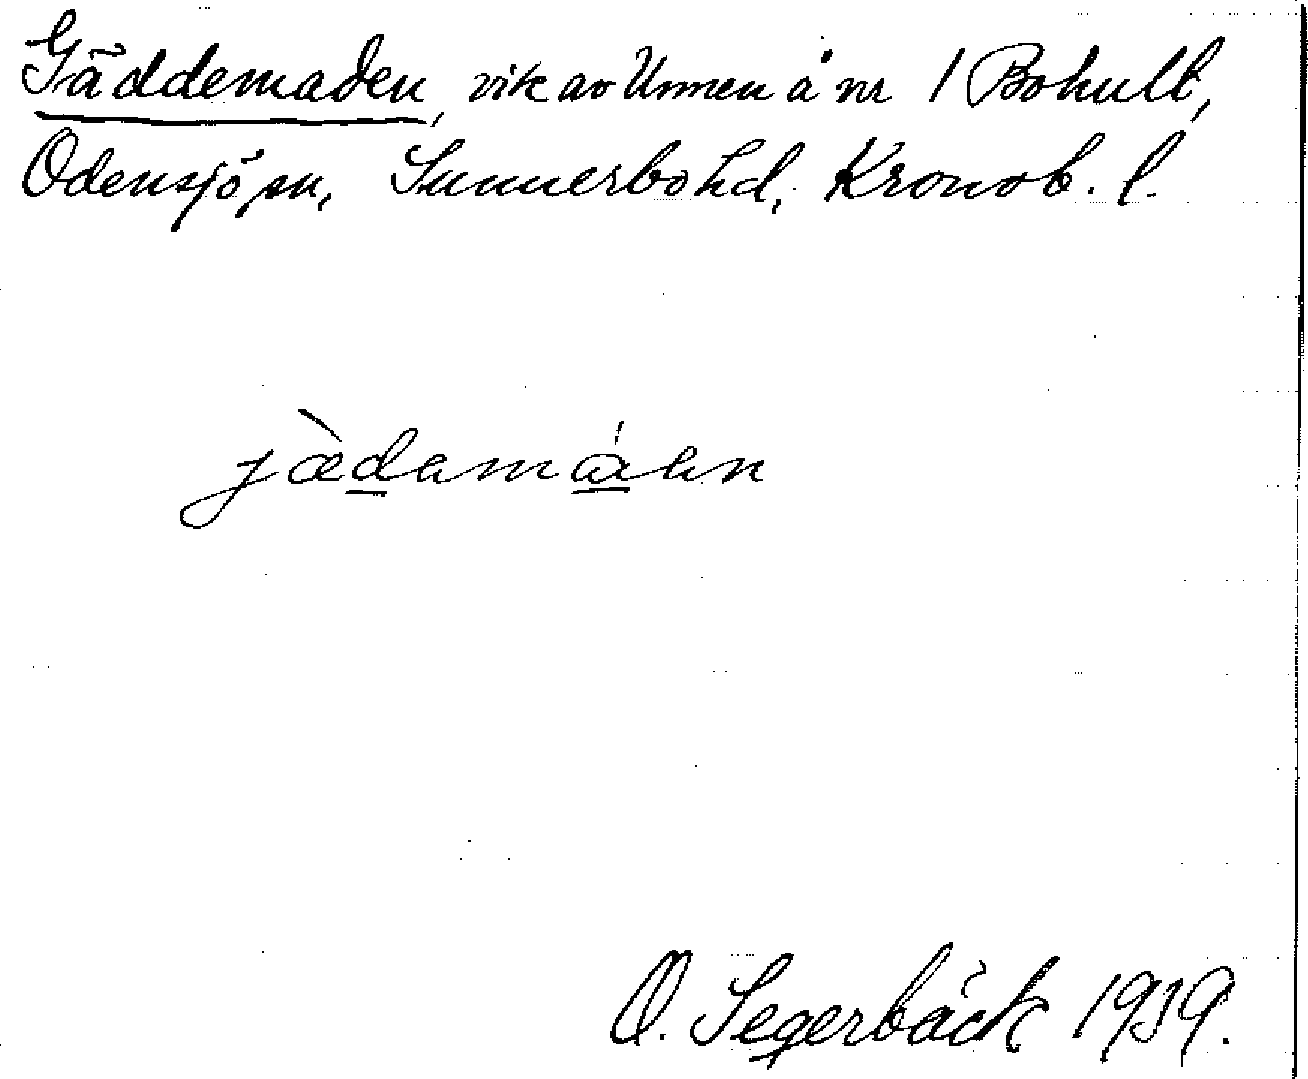 Gäddemaden, vik av Unnen å nr 1 Bohult,
Odensjö sn, Sunnerbo hd, Kronob. l.
jæ̀damáen
O. Segerbäck 1939.